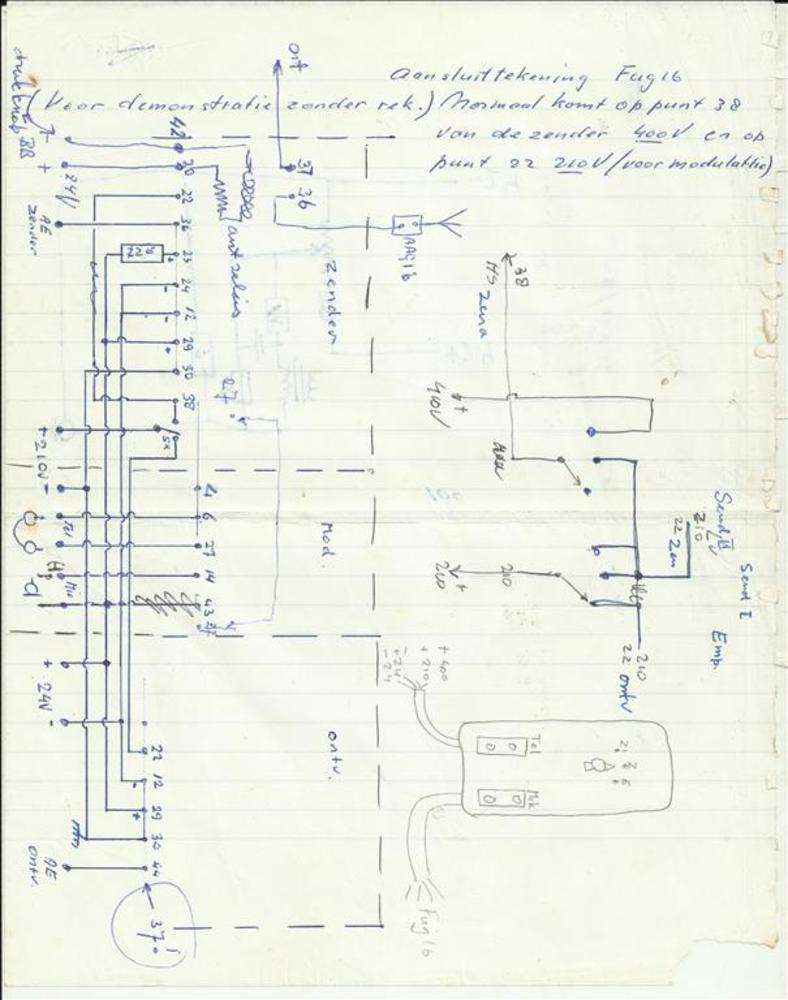 Aansluittekening Fug16
(Voor demonstratie zonder rek.) Normaal komt op punt 38
van de zender 400V en op
punt 22 210V (voor modulatie)
ont
drukknop BB
-
+
24V
AE
zender
42
20
22
36
23
24
12
29
30
38
37
36
ant relais
AAG16
zender
27
sk
+210V-
4
6
27
14
43
Tel
Mic
Mod.
+
24V
-
22
12
29
30
44
ontv.
AE
ontv.
37
38
HS
400V
+
210
+
210
Send II
210V
22 Zen
Send I
Emp.
210
22 ontv
+400
+210
+24
-24
Tel
Mik
Fug16